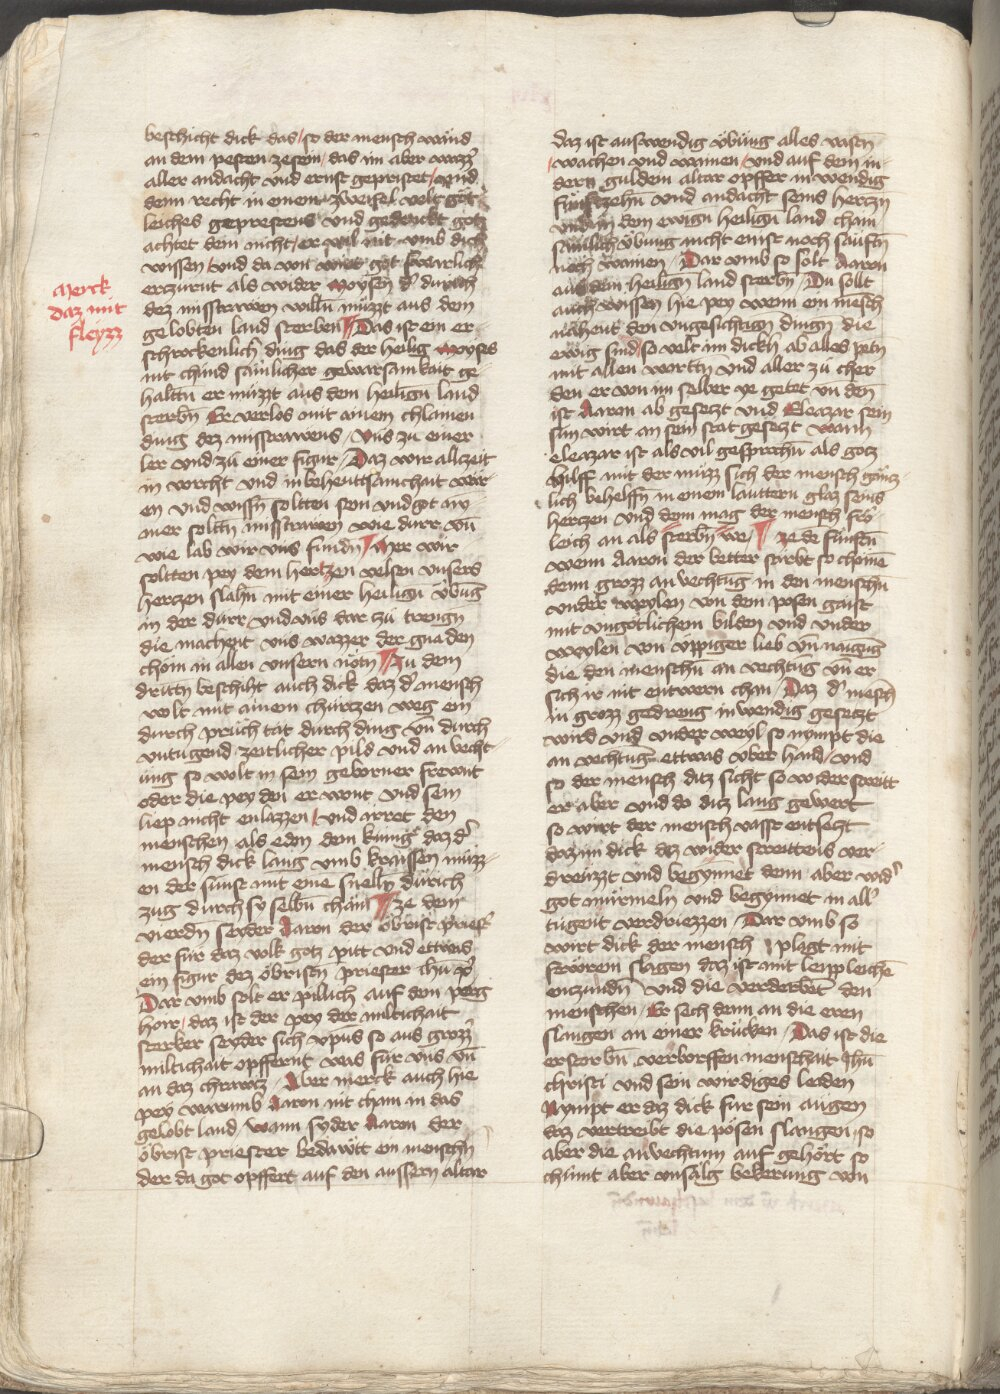 beschicht dick das / so der mensch wånd
an dem pesten ze sein / das im aber wazz̉
aller andacht vnd ernst gepristet / vnd
denn recht in einem zweifel velt göt
leiches geprestens vnd gedenckt got
achtet dein nicht / er wil nit vmb dich
wissen / vnd da von wirt got swarlich
erzürnt als wider Moysen d̉ durich
dez misstrawen willn müzzt aus dem
gelobten land sterben ¶ Das ist ein er
schrockenlich ding das der heilig Moyses
nit chind sämlicher gewarsamkait ge
haltn̄ er müzzt aus dem heilign̄ land
sterbn̄ Er verlos mit ainem chlainen
ding dez misstrawens / Vns zu einer
ler vnd zu einer figur / Daz wir allzeit
in vorcht vnd in behenttsamchait wär
en vnd wissn̄ soltten sein vnd got ny
mer soltn̄ misstrawen wie dürr vn̄
wie lab wir vns fundn̄ ¶ Mer wir
soltten pey dem hertzen velsen vnsers
hertzen slahn̄ mit einer heilign̄ vbung
in der dürr / vnd vns dar zu trengn̄
die machent vns wazzer der gnaden
chöm in allen vnsern nötn̄ ¶ Zu dem
drittn̄ beschiht auch dick daz d̉ mensch
wolt mit ainem chürtzen weg ein
durch pruch tät durch ding vn̄ durch
vntugend zeitlicher pild vnd an vecht
ung so wolt in sein geborner frewnt
oder die pey den er wont vnd sein
liep nicht enlazzen / vnd irret den
menschen als edon dem künig daz d̉
mensch dick lang vmb kraissen müzz
en der sunst mit eine snelln̄ dürich
zug durch sy selbn̄ chäm ¶ ze dem
vierdn̄ seyder Aaron der öbrist priest̉
der für daz volk gotz pitt vnd ettwas
ein figur dez öbristn̄ priester ihū xp̄i
Dar vmb solt er pillich auf dem perg
hor / daz ist der perg der miltichait
sterben seyder sich xp̄us so aus grozz̉
miltichait opffernt was für vns vn̄
an daz chrawtz / Aber merck auch hie
pey warumb Aaron nit cham in das
gelobt land / wann syder Aaron der
öbrist priester bedawtt ein menschn̄
der da got opffert auf den aussern altar
Merck
daz mit
fleyzz
daz ist auswendig vbung alles vastn̄
wachen vnd wainen / vnd auf dem in
dern guldein altar opffer inwendig
sünftzehn̄ vnd andacht seins hertzn̄
vnd in dem ewign̄ heilign̄ land cham
sämlich vbung nicht ernst noch säuftn̄
noch wainen / Dar vmb so solt Aaron
aus dem heilign̄ land sterbn̄ / Du solt
auch wissen hie pey wenn ein mēsch
nähent den vngesichtign̄ dingn̄ die
ewig sind / so velt im dickn̄ ab alles petn̄
mit allen wortn̄ vnd aller zu cher
den er von im selber ye getet vn̄ den̄
ist Aaron ab gesetzt vnd Eleazar sein
sun wirt an sein stat gesetzt wann
eleazar ist als vil gesprochn̄ als gotz
hilff mit der müzz sich der mensch gäntz
lich behelffn̄ in einem lauttern glaz seins
hertzen vnd dem mag der mensch frö
leich an als sterbn̄ we / ¶ ze de fünftn̄
wenn Aaron der vetter stirbt so chöme
denn grozz an vechtūg in den menschn̄
vnder weylen von dem posen gaist
mit vngötlichem bilden vnd vnder
weylen von vppiger lieb vn̄ naigūg
die den menschn̄ an vechtūg vn̄ er
sich ir nit entwern chan / Daz d̉ mēsch
in grozz gedreng inwendig gesetzt
wird vnd vnder weyl so nympt die
an vechtung ettwas vber hand / vnd
so der mensch ditz sicht so wider streitt
er aber vnd do ditz lang gewert
so wirt der mensch vasst entsetzt
daz im dick dez wider streittens ver
dreüzzt vnd begynnet denn aber wid̉
got mürmeln vnd begynnet in all̉
tugent verdriezzen / Dar vmb so
wirt dick der mensch plagt mit
swårem slagen daz ist mit leipleiche
enzündn̄ vnd die verderbt den
menschen / Er sech denn an die eren
slangen an einer krücken / Das ist die
erstorbn̄ verworffen menschait Jhū
christi vnd sein wirdiges leiden
Nympt er daz dick für sein augen
daz vertreibt die pösen slangen / so
aber die anvechtum auf gehört so
chümt aber vnsälg bekerung von